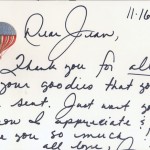 11-16
Dear Jean,
Thank you for all
your goodies that you
sent. Just want you
know I appreciate &
you so much
all love,